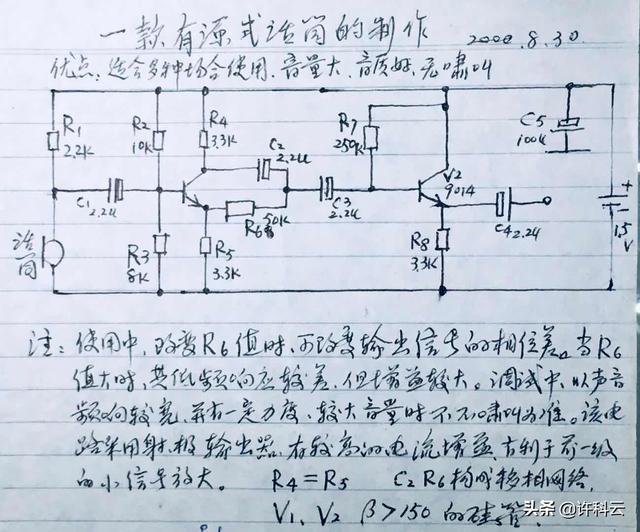 一款有源式话筒的制作 2000.8.30.
优点，适合多种场合使用，音量大，音质好，无啸叫
R1 2.2K
R2 10K
R4 3.3K
C2 2.2u
R7 250K
C5 100u
C1 2.2u
R6 50K
C3 2.2u
V2 9014
C4 2.2u
1.5V
话筒
R3 8K
R5 3.3K
R8 3.3K
注：使用中，改变R6值时，可改变输出信号的相位差。当R6
值大时，其低频响应较差，但增益较大。调试中，以声音
频响较宽，并有一定力度，较大音量时不啸叫为准。该电
路采用射极输出器，有较高的电流增益，有利于前一级
的小信号放大。 R4=R5 C2 R6构成移相网络，
V1、V2 β>150 的硅管
头条 @许科云